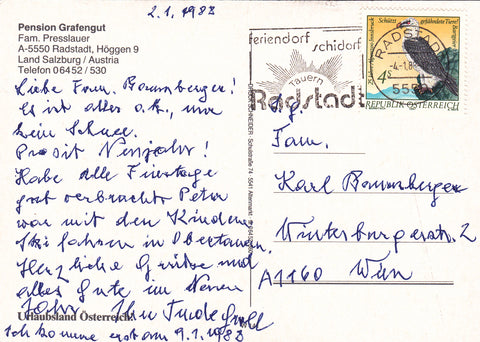 2.1.1983
Pension Grafengut
Fam. Presslauer
A-5550 Radstadt, Höggen 9
Land Salzburg / Austria
Telefon 06452 / 530
Liebe Fam. Baumberger!
Es ist alles o.k., nur
kein Schnee.
Prosit Neujahr!
Habe alle Feiertage
gut verbracht Peter
war mit den Kindern
Ski fahren in Obertauern.
Herzliche Grüße und
alles Gute im Neuen
Jahr. Ihr
Urlaubsland Österreich
Ich komme erst am 9.1.1983
feriendorf
schidorf
Tauern
Radstadt
RADSTADT
-4.-1.8
5550
Schützt gefährdete Tiere!
REPUBLIK ÖSTERREICH
Fam.
Karl Baumberger
Winterburgerstr. 2
A1160 Wien